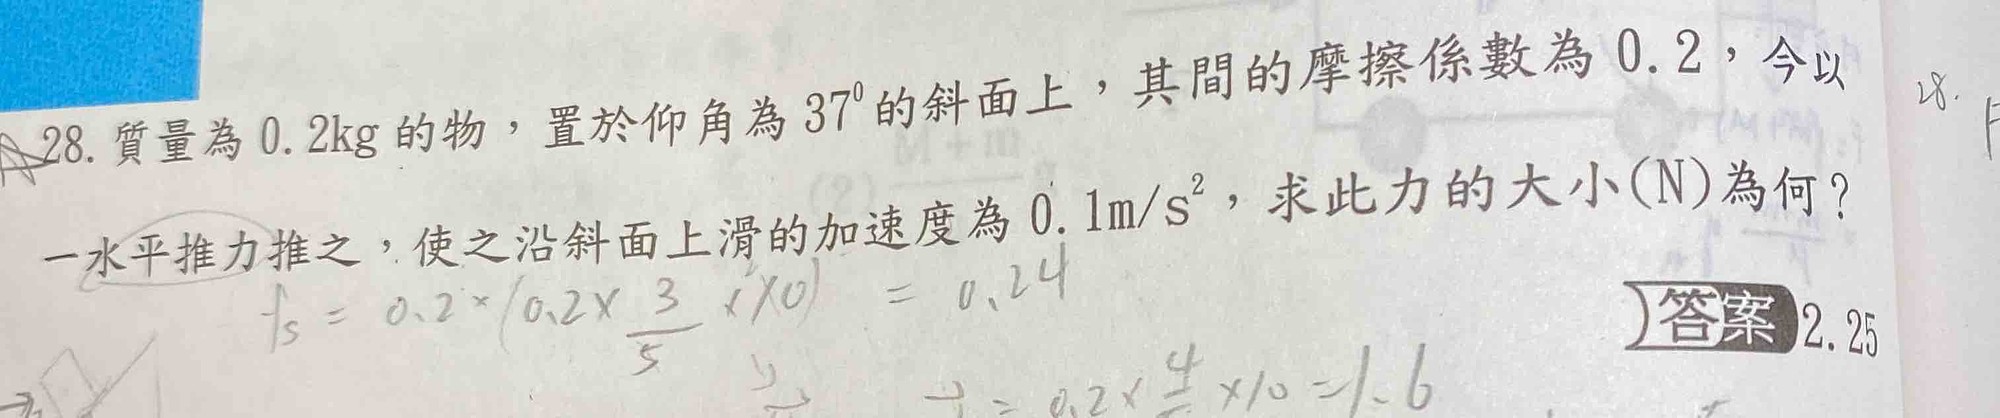 28. 質量為 0.2kg 的物，置於仰角為 37⁰的斜面上，其間的摩擦係數為 0.2，今以
一水平推力推之，使之沿斜面上滑的加速度為 0.1m/s²，求此力的大小(N)為何？
fs = 0.2×(0.2× 3/5 ×10) = 0.24
答案 2.25
= 0.2× 4/5 ×10 = 1.6
28.